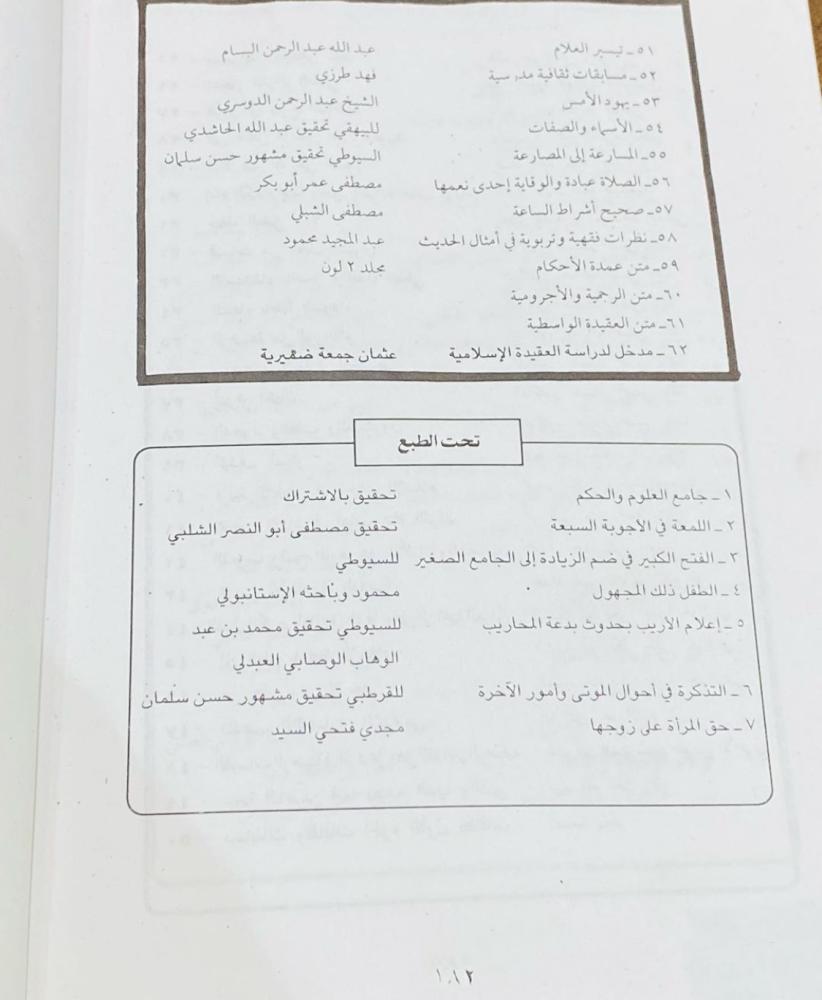 ٥١ ـ تيسير العلام عبد الله عبد الرحمن البسام
٥٢ ـ مسابقات ثقافية مدرسية فهد طرزي
٥٣ ـ يهود الأمس الشيخ عبد الرحمن الدوسري
٥٤ ـ الأسماء والصفات للبيهقي تحقيق عبد الله الحاشدي
٥٥ ـ المسارعة إلى المصارعة السيوطي تحقيق مشهور حسن سلمان
٥٦ ـ الصلاة عبادة والوقاية إحدى نعمها مصطفى عمر أبو بكر
٥٧ ـ صحيح أشراط الساعة مصطفى الشبلي
٥٨ ـ نظرات فقهية وتربوية في أمثال الحديث عبد المجيد محمود
٥٩ ـ متن عمدة الأحكام مجلد ٢ لون
٦٠ ـ متن الرحبية والأجرومية
٦١ ـ متن العقيدة الواسطية
٦٢ ـ مدخل لدراسة العقيدة الإسلامية عثمان جمعة ضميرية
تحت الطبع
١ ـ جامع العلوم والحكم تحقيق بالاشتراك
٢ ـ اللمعة في الأجوبة السبعة تحقيق مصطفى أبو النصر الشلبي
٣ ـ الفتح الكبير في ضم الزيادة إلى الجامع الصغير للسيوطي
٤ ـ الطفل ذلك المجهول محمود وباحثه الإستانبولي
٥ ـ إعلام الأريب بحدوث بدعة المحاريب للسيوطي تحقيق محمد بن عبد
الوهاب الوصابي العبدلي
٦ ـ التذكرة في أحوال الموتى وأمور الآخرة للقرطبي تحقيق مشهور حسن سلمان
٧ ـ حق المرأة على زوجها مجدي فتحي السيد